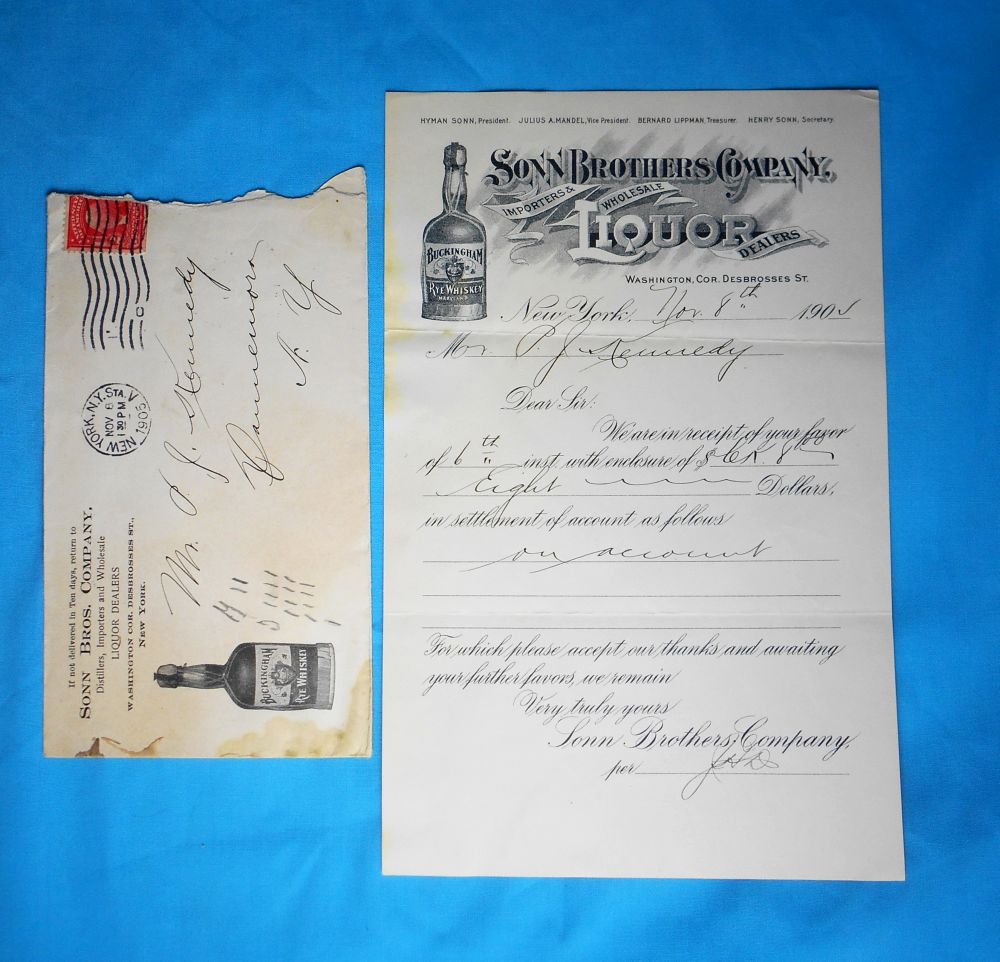 If not delivered in Ten days, return to
SONN BROS. COMPANY,
Distillers, Importers and Wholesale
LIQUOR DEALERS
WASHINGTON COR. DESBROSSES ST.,
NEW YORK.
NEW YORK, N.Y. STA. V
NOV 8
1 30 PM
1905
Mr. P. J. Kennedy
Dannemora
N. Y
BUCKINGHAM
RYE WHISKEY
HYMAN SONN, President. JULIUS A. MANDEL, Vice President. BERNARD LIPPMAN, Treasurer. HENRY SONN, Secretary.
SONN BROTHERS COMPANY,
IMPORTERS & WHOLESALE
LIQUOR
DEALERS
WASHINGTON, COR. DESBROSSES ST.
BUCKINGHAM
RYE WHISKEY
MARYLAND
New York, Nov. 8th 1905
Mr. P J Kennedy
Dear Sir:
We are in receipt of your favor
of 6th inst. with enclosure of $ CK.
Eight Dollars,
in settlement of account as follows
on account
For which please accept our thanks and awaiting
your further favors, we remain
Very truly yours
Sonn Brothers Company,
per